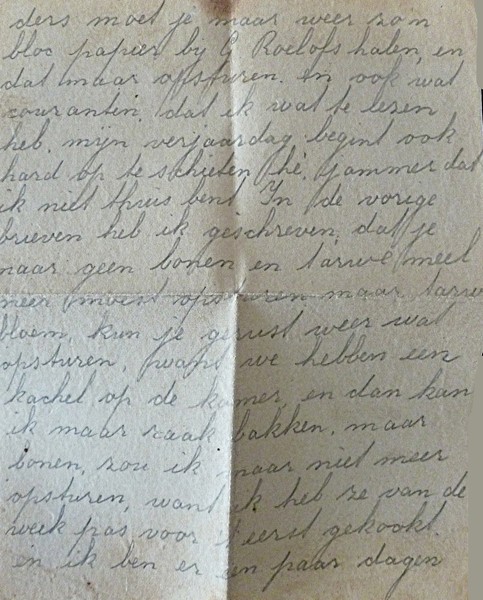 ders moet je maar weer zon
bloc papier by G Roelofs halen, en
dat maar opsturen. En ook wat
couranten, dat ik wat te lezen
heb, mijn verjaardag begint ook
hard op te schieten hè, jammer dat
ik niet thuis bent. In de vorige
brieven heb ik geschreven, dat je
maar geen bonen en tarwe meel
meer moest opsturen maar tarwe
bloem, kun je gerust weer wat
opsturen, want we hebben een
kachel op de kamer, en dan kan
ik maar raak bakken, maar
bonen, zou ik maar niet meer
opsturen, want ik heb ze van de
week pas voor 't eerst gekookt.
en ik ben er een paar dagen